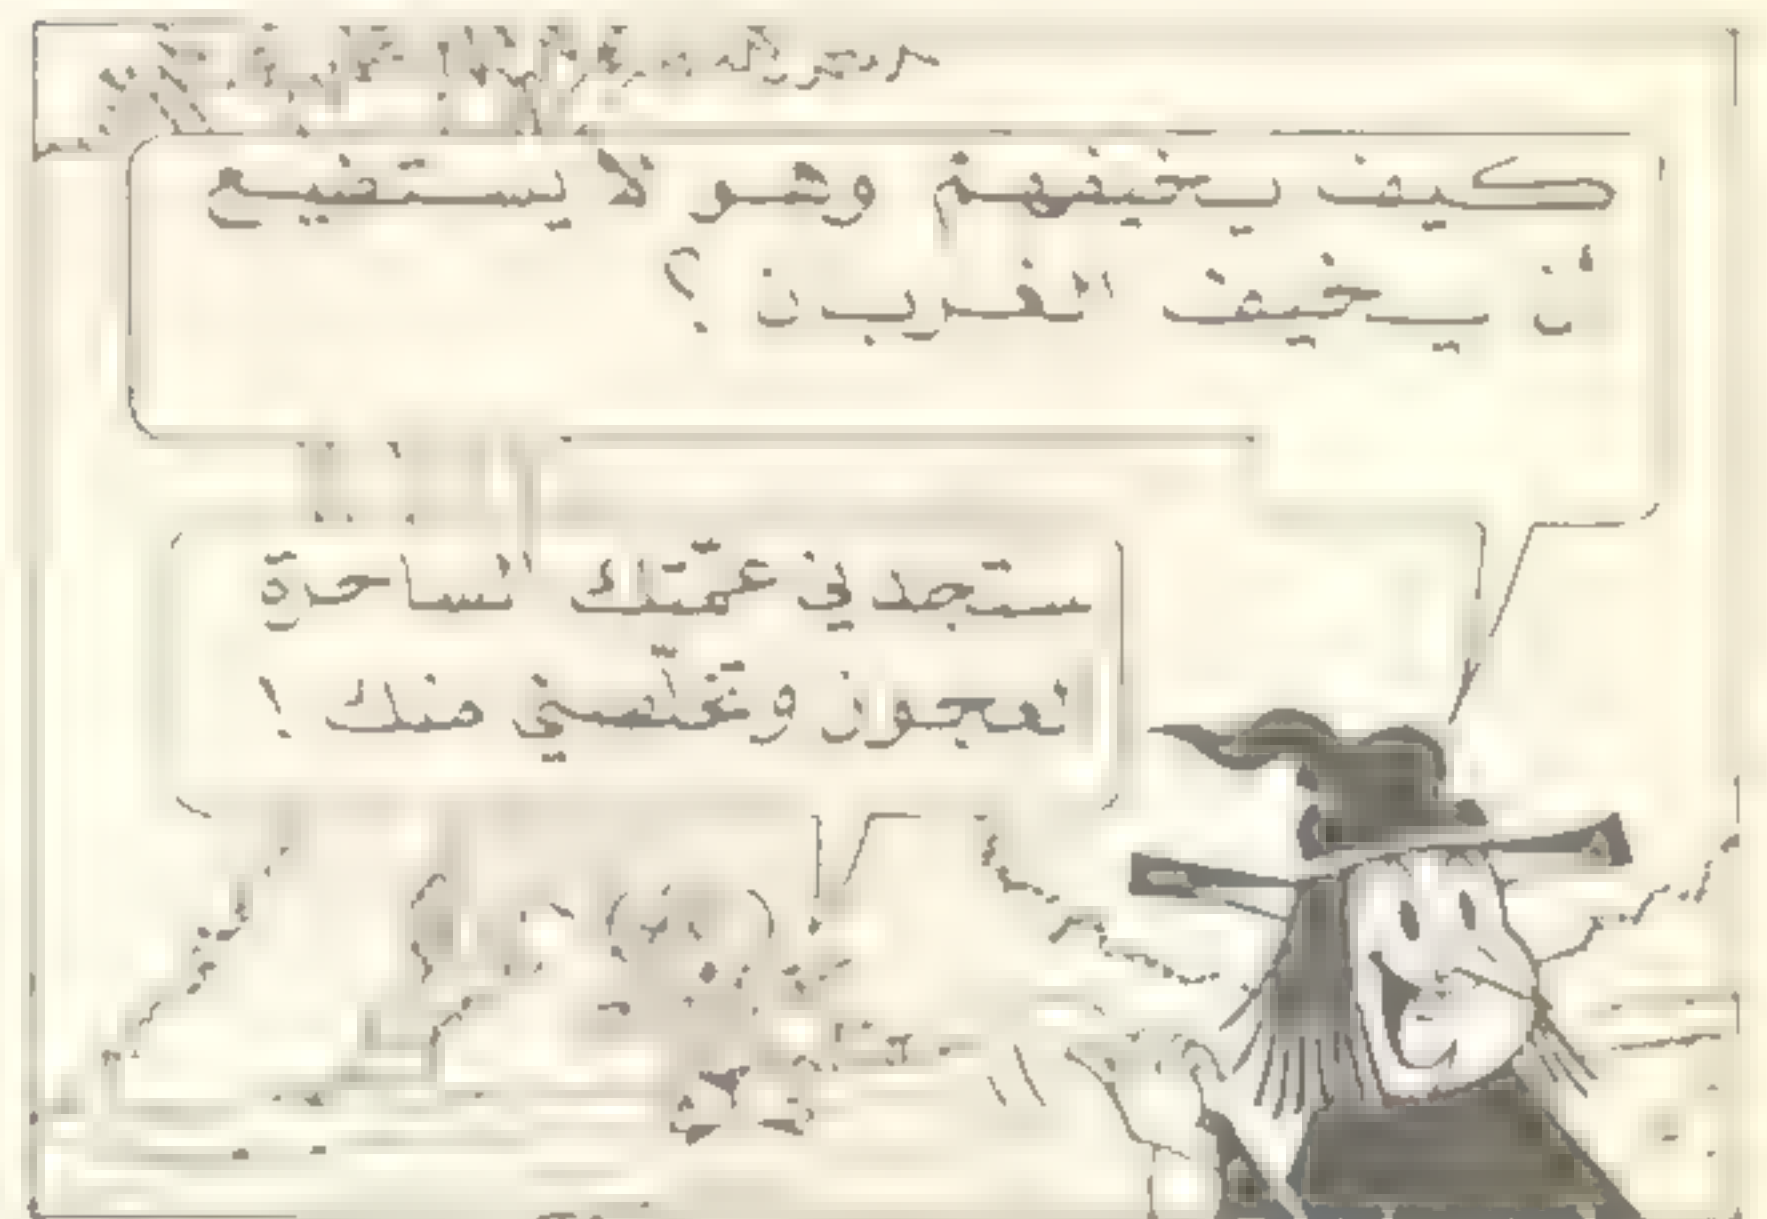 كيف يخيفهم وهو لا يستطيع
أن يخيف الغربان؟
ستجدني عمّتك الساحرة
العجوز وتخلّصني منك!